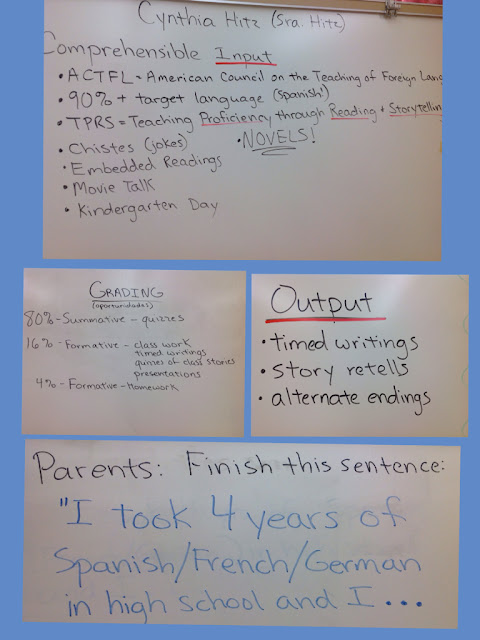 Cynthia Hitz (Sra. Hitz)
Comprehensible Input
• ACTFL = American Council on the Teaching of Foreign Lang
• 90% + target language (Spanish!)
• TPRS = Teaching Proficiency through Reading + Storytelling
• Chistes (jokes)
• NOVELS!
• Embedded Readings
• Movie Talk
• Kindergarten Day
GRADING
(oportunidades)
80% - Summative - quizzes
16% - Formative - class work
timed writings
quizzes of class stories
presentations
4% - Formative - homework
Output
• timed writings
• story retells
• alternate endings
Parents: Finish this sentence:
"I took 4 years of
Spanish/French/German
in high school and I...